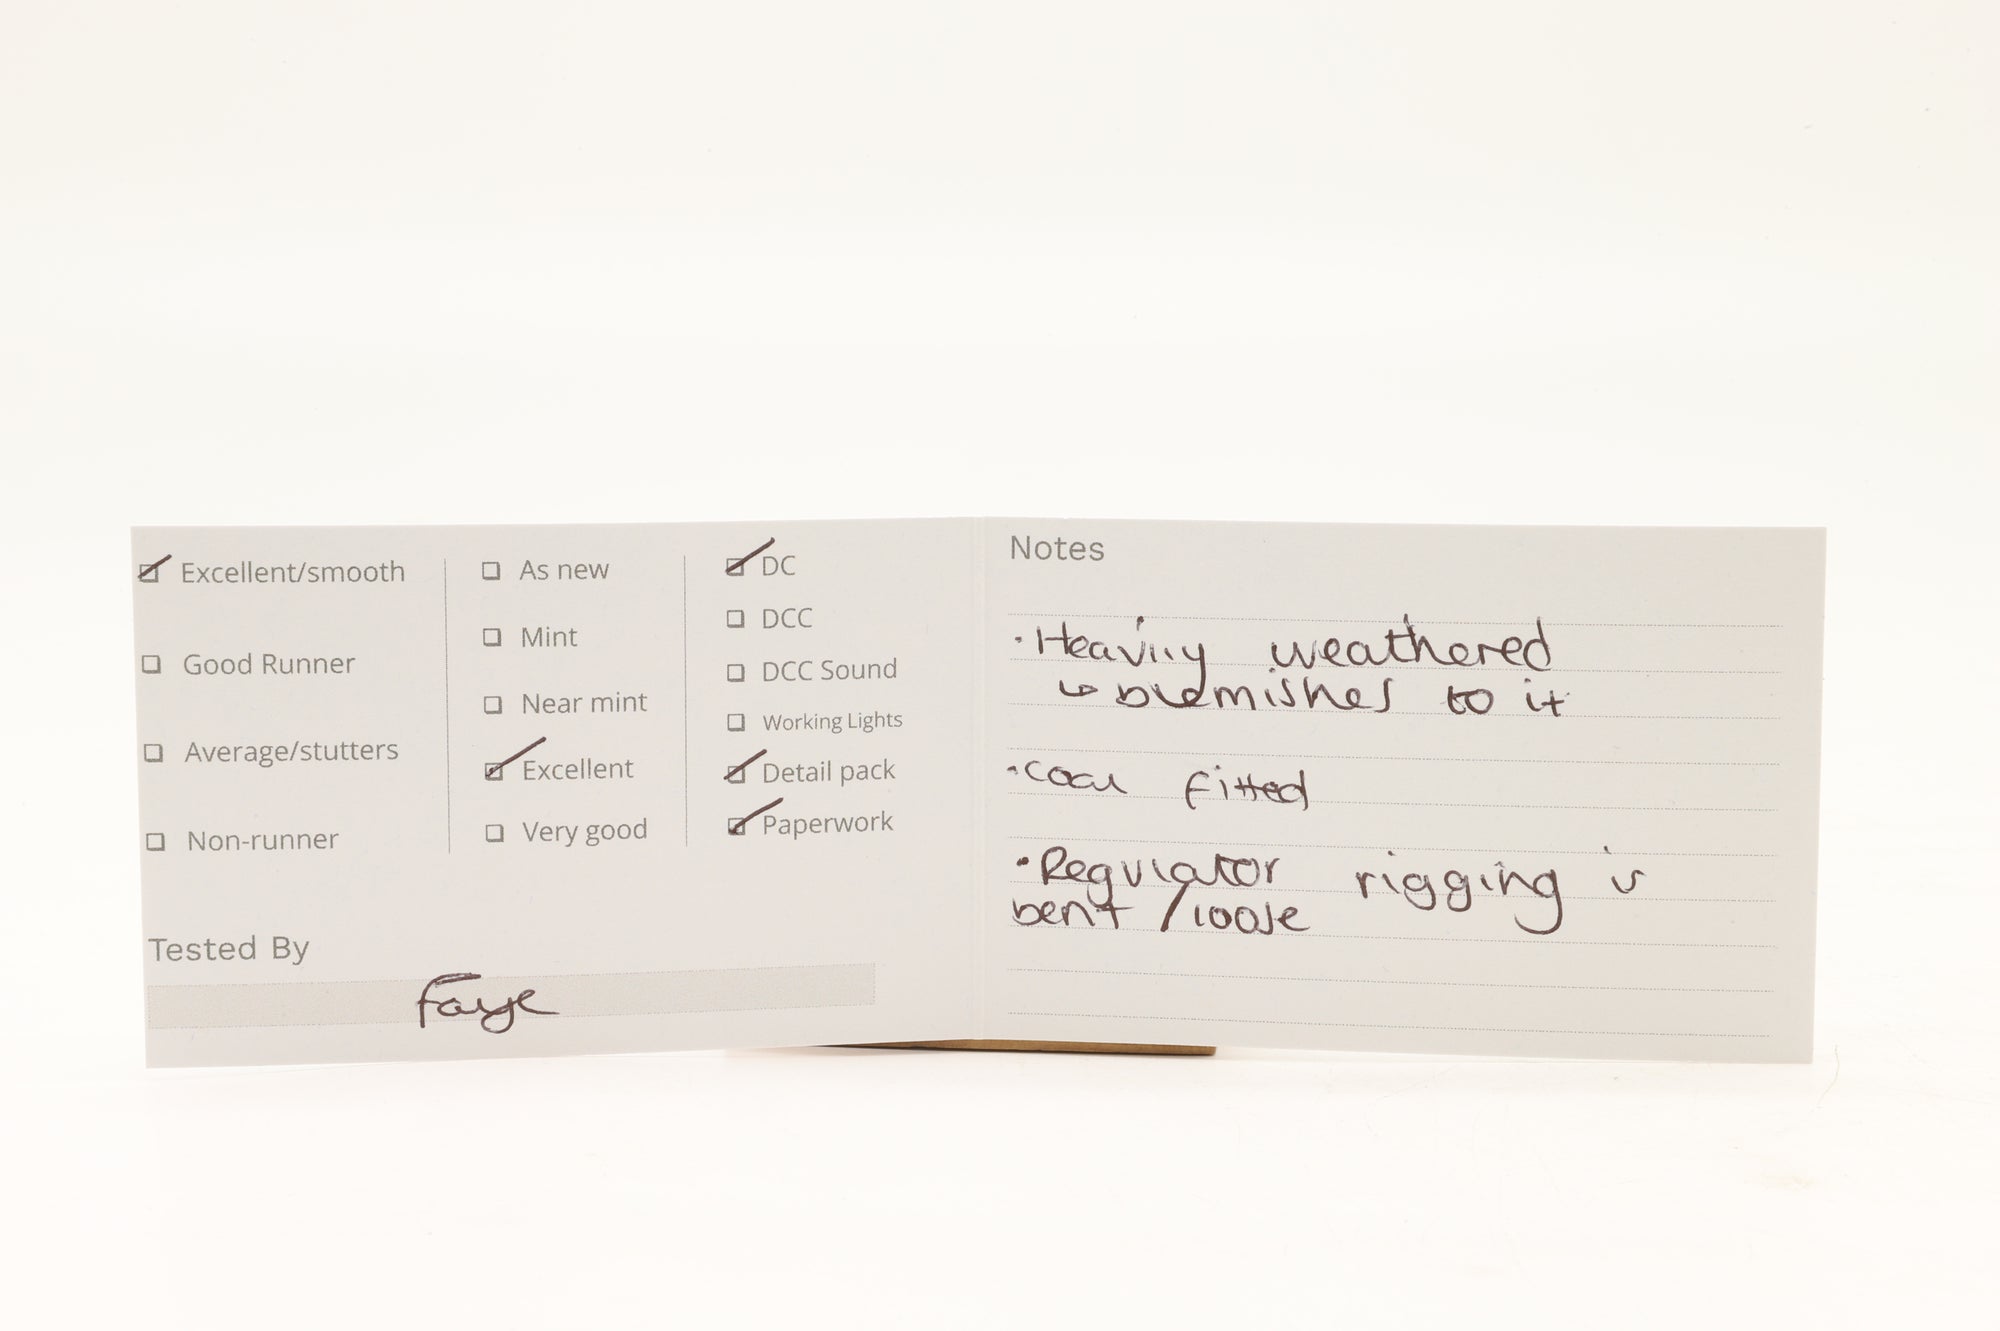 ☑ Excellent/smooth
☐ Good Runner
☐ Average/stutters
☐ Non-runner
☐ As new
☐ Mint
☐ Near mint
☑ Excellent
☐ Very good
☑ DC
☐ DCC
☐ DCC Sound
☐ Working Lights
☑ Detail pack
☑ Paperwork
Tested By
Faye
Notes
· Heavily weathered
↳ blemishes to it
· coal fitted
· Regulator rigging is
bent / loose